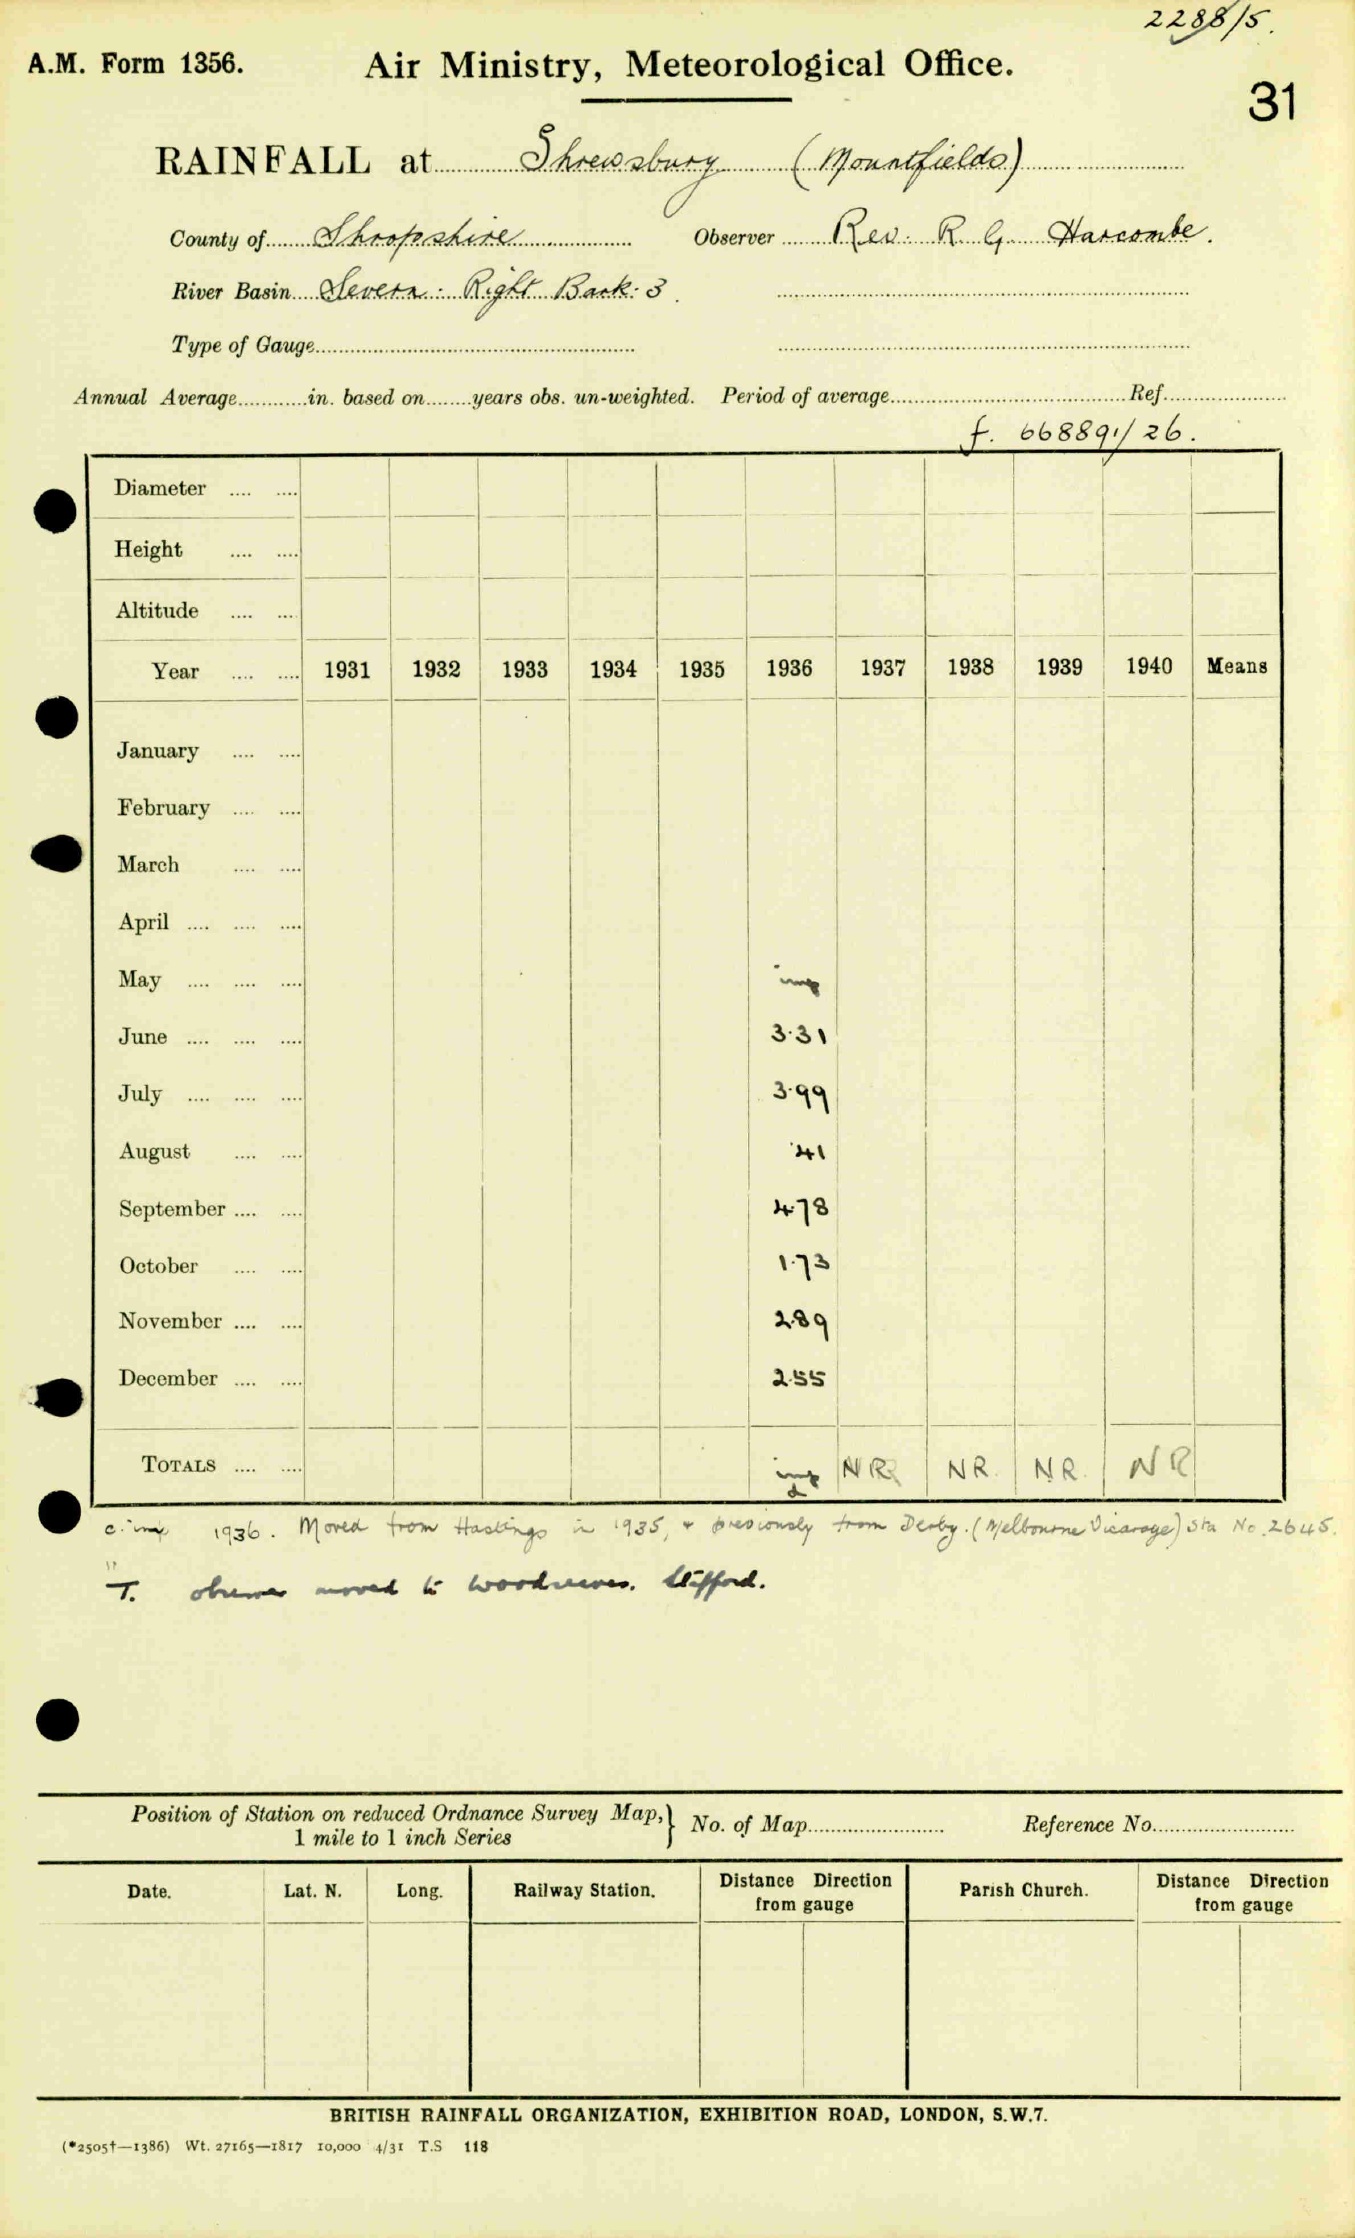 2288/5.
A.M. Form 1356. Air Ministry, Meteorological Office.
31
RAINFALL at Shrewsbury (Mountfields)
County of Shropshire Observer Rev. R G Harcombe.
River Basin Severn: Right Bank: 3.
Type of Gauge
Annual Average in. based on years obs. un-weighted. Period of average Ref.
f. 668891/26.
Diameter
Height
Altitude
Year 1931 1932 1933 1934 1935 1936 1937 1938 1939 1940 Means
January
February
March
April
May imp
June 3.31
July 3.99
August .41
September 4.78
October 1.73
November 2.89
December 2.55
TOTALS imp NR NR NR NR
1936. Moved from Hastings in 1935, & previously from Derby. (Melbourne Vicarage) Sta No. 2645.
" T. observer moved to Woodseaves, Stafford.
Position of Station on reduced Ordnance Survey Map,} No. of Map Reference No.
1 mile to 1 inch Series
Date. Lat. N. Long. Railway Station. Distance Direction from gauge Parish Church. Distance Direction from gauge
BRITISH RAINFALL ORGANIZATION, EXHIBITION ROAD, LONDON, S.W.7.
(*2505†—1386) Wt. 27165—1817 10,000 4/31 T.S 118